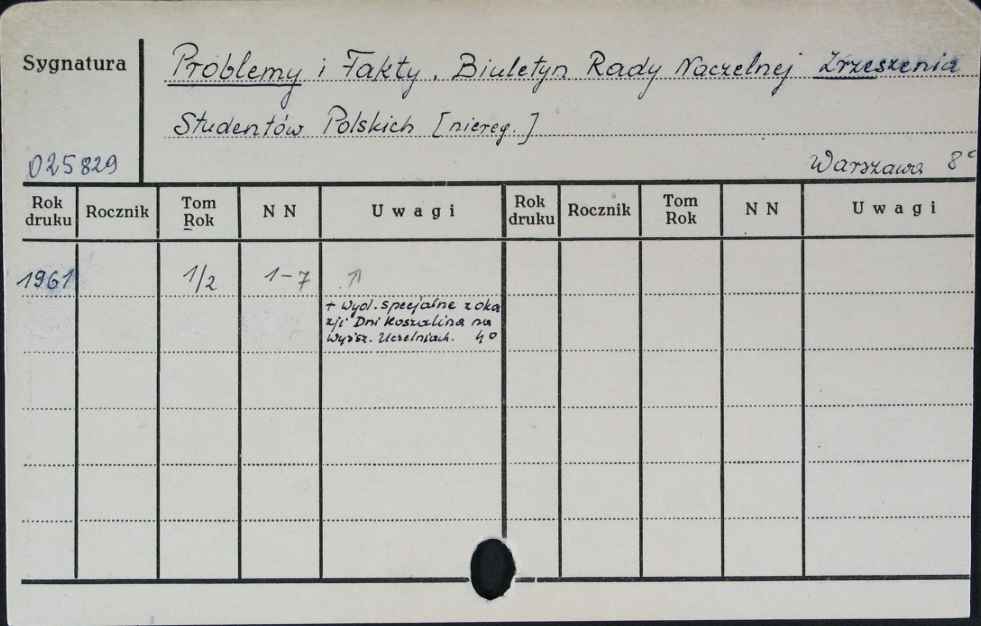 Sygnatura
Problemy i Fakty. Biuletyn Rady Naczelnej Zrzeszenia
Studentów Polskich [niereg.]
025829
Warszawa 8°
Rok druku Rocznik Tom Rok N N Uwagi Rok druku Rocznik Tom Rok N N Uwagi
1961 1/2 1-7 ↑
+ Wyd. specjalne z oka
zji Dni Koszalina na
Wyższ. Uczelniach. 4°